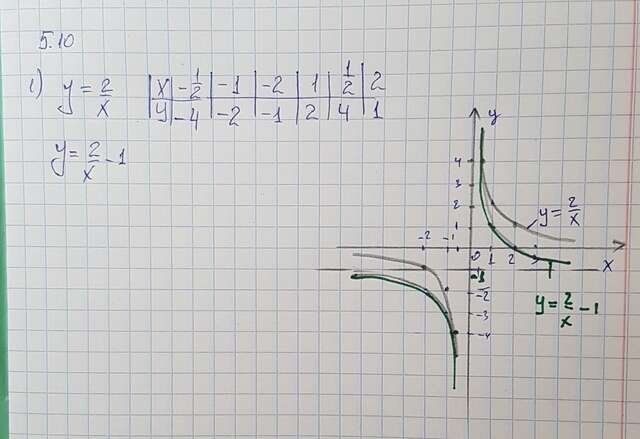 5.10
1) y = 2/x
x | -1/2 | -1 | -2 | 1 | 1/2 | 2
y | -4 | -2 | -1 | 2 | 4 | 1
y = 2/x - 1
y
4
3
2
1
y = 2/x
-2 -1 0 1 2 x
-2
-3
-4
y = 2/x - 1